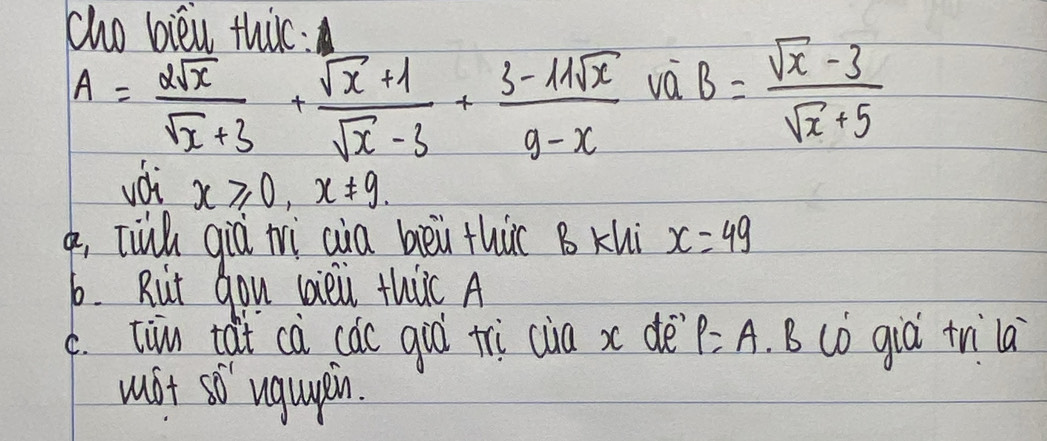 Cho biểu thức:
A = 2√x / (√x + 3) + (√x + 1) / (√x - 3) + (3 - 11√x) / (9 - x) và B = (√x - 3) / (√x + 5)
với x ⩾ 0, x ≠ 9.
a, Tính giá trị của biểu thức B khi x = 49
b. Rút gọn biểu thức A
c. tìm tất cả các giá trị của x để P = A.B có giá trị là
một số nguyên.